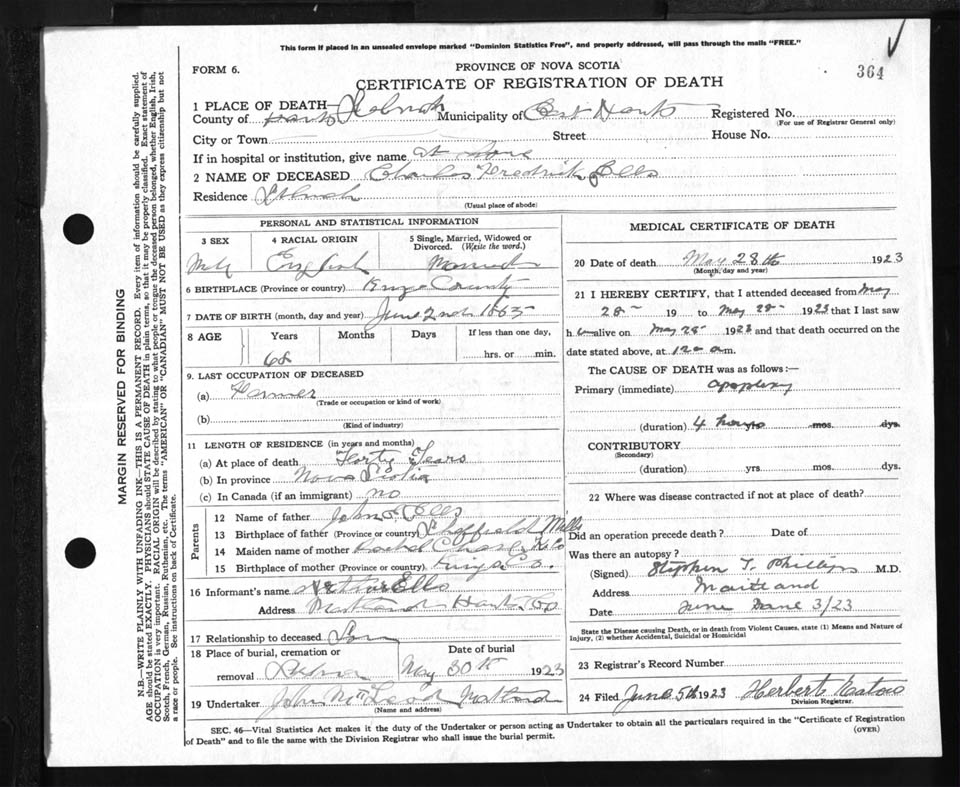 This form if placed in an unsealed envelope marked "Dominion Statistics Free", and properly addressed, will pass through the mails "FREE."
FORM 6.
PROVINCE OF NOVA SCOTIA
364
CERTIFICATE OF REGISTRATION OF DEATH
1 PLACE OF DEATH—
County of Hants Municipality of East Hants Registered No.
(For use of Registrar General only)
City or Town Street House No.
If in hospital or institution, give name at Home
2 NAME OF DECEASED Charles Fredrick Ells
Residence
(Usual place of abode)
PERSONAL AND STATISTICAL INFORMATION
3 SEX
4 RACIAL ORIGIN
5 Single, Married, Widowed or Divorced. (Write the word.)
Male English Married
6 BIRTHPLACE (Province or country) Kings County
7 DATE OF BIRTH (month, day and year) June 2nd 1865
8 AGE Years Months Days If less than one day,
68 hrs. or min.
9. LAST OCCUPATION OF DECEASED
(a) Farmer
(Trade or occupation or kind of work)
(b)
(Kind of industry)
11 LENGTH OF RESIDENCE (in years and months)
(a) At place of death Forty Years
(b) In province Nova Scotia
(c) In Canada (if an immigrant) no
Parents
12 Name of father John Ells
13 Birthplace of father (Province or country) Sheffield Mills
14 Maiden name of mother
15 Birthplace of mother (Province or country) Kings Co.
16 Informant's name Arthur Ells
Address Maitland Hants Co
17 Relationship to deceased Son
18 Place of burial, cremation or removal
Date of burial
May 30th 1923
19 Undertaker John McLeod Maitland
(Name and address)
MEDICAL CERTIFICATE OF DEATH
20 Date of death May 28th 1923
(Month, day and year)
21 I HEREBY CERTIFY, that I attended deceased from May
28 19 to May 28 1923 that I last saw
h im alive on May 28 1923 and that death occurred on the
date stated above, at 12 a m.
The CAUSE OF DEATH was as follows:—
Primary (immediate) apoplexy
(duration) 4 hours mos. dys.
CONTRIBUTORY
(Secondary)
(duration) yrs. mos. dys.
22 Where was disease contracted if not at place of death?
Did an operation precede death? Date of
Was there an autopsy?
(Signed) Stephen T. Phillips M.D.
Address Maitland
Date June 3/23
State the Disease causing Death, or in death from Violent Causes, state (1) Means and Nature of Injury, (2) whether Accidental, Suicidal or Homicidal
23 Registrar's Record Number
24 Filed June 5th 1923 Herbert Eaton
Division Registrar.
SEC. 46—Vital Statistics Act makes it the duty of the Undertaker or person acting as Undertaker to obtain all the particulars required in the "Certificate of Registration
of Death" and to file the same with the Division Registrar who shall issue the burial permit.
(OVER)
MARGIN RESERVED FOR BINDING
N.B.—WRITE PLAINLY WITH UNFADING INK—THIS IS A PERMANENT RECORD. Every item of information should be carefully supplied.
AGE should be stated EXACTLY. PHYSICIANS should STATE CAUSE OF DEATH in plain terms, so that it may be properly classified. Exact statement of
OCCUPATION is very important. RACIAL ORIGIN will be described by stating to what people or tongue the deceased person belonged, whether English, Irish,
Scotch, French, German, Russian, Ruthenian, etc. The terms "AMERICAN" OR "CANADIAN" MUST NOT BE USED as they express citizenship but not
a race or people. See instructions on back of Certificate.